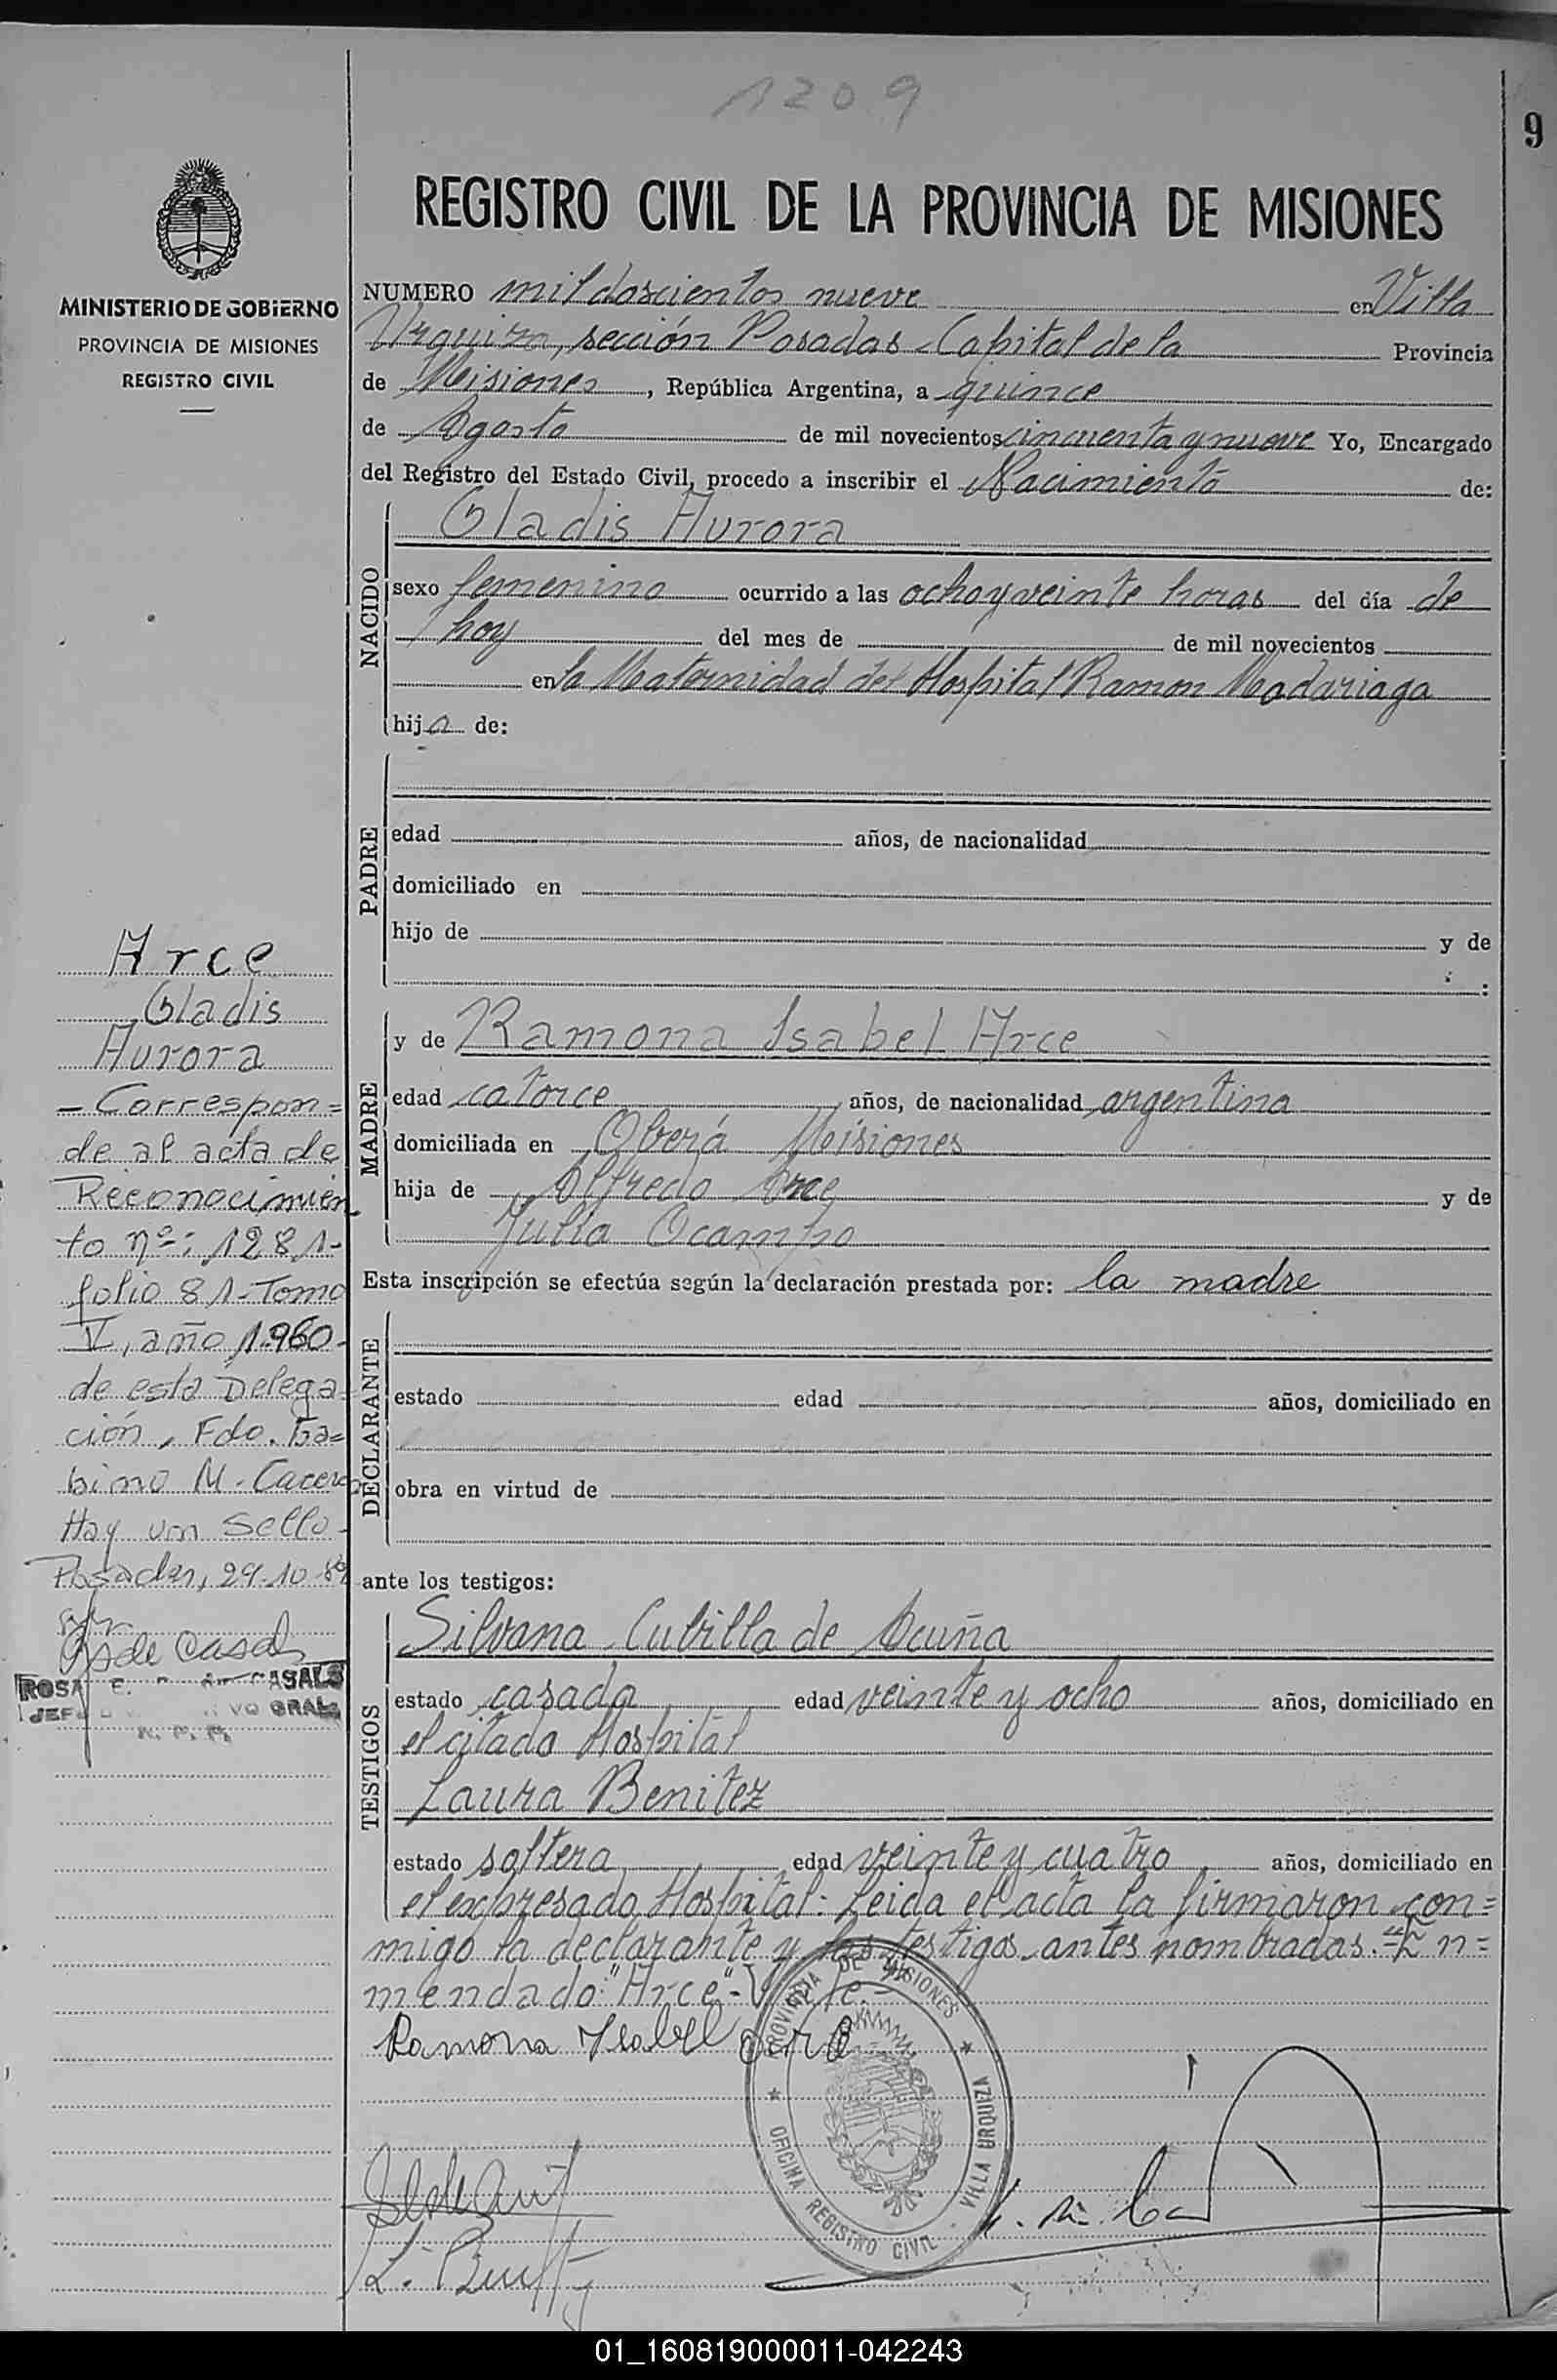 1209
9
REGISTRO CIVIL DE LA PROVINCIA DE MISIONES
MINISTERIO DE GOBIERNO
PROVINCIA DE MISIONES
REGISTRO CIVIL
NUMERO mil doscientos nueve en Villa
Urquiza, sección Posadas - Capital de la Provincia
de Misiones, República Argentina, a quince
de Agosto de mil novecientos cincuenta y nueve Yo, Encargado
del Registro del Estado Civil, procedo a inscribir el Nacimiento de:
NACIDO
Gladis Aurora
sexo femenino ocurrido a las ocho y veinte horas del día de
hoy del mes de de mil novecientos
en la Maternidad del Hospital Ramon Madariaga
hija de:
PADRE
edad años, de nacionalidad
domiciliado en
hijo de y de
:
MADRE
y de Ramona Isabel Arce
edad catorce años, de nacionalidad argentina
domiciliada en Oberá Misiones
hija de Alfredo Arce y de
Julia Ocampo
Esta inscripción se efectúa según la declaración prestada por: la madre
DECLARANTE
estado edad años, domiciliado en
obra en virtud de
ante los testigos:
TESTIGOS
Silvana Cubilla de Acuña
estado casada edad veinte y ocho años, domiciliado en
el citado Hospital
Laura Benitez
estado soltera edad veinte y cuatro años, domiciliado en
el expresado Hospital. Leida el acta la firmaron con=
migo la declarante y las testigos antes nombradas. En=
mendado: "Arce" - Vale.-
Ramona Ysabel Arce
PROVINCIA DE MISIONES
OFICINA REGISTRO CIVIL - VILLA URQUIZA
Arce
Gladis
Aurora
- Correspon=
de al acta de
Reconocimien
to nº: 1281-
folio 81-Tomo
V, año 1.960-
de esta Delega=
ción, Fdo. Ga=
bino M. Caceres
Hay un Sello-
Posadas, 29-10-
de Casals
ROSA E. CASALS
JEF VO GRAL
01_160819000011-042243